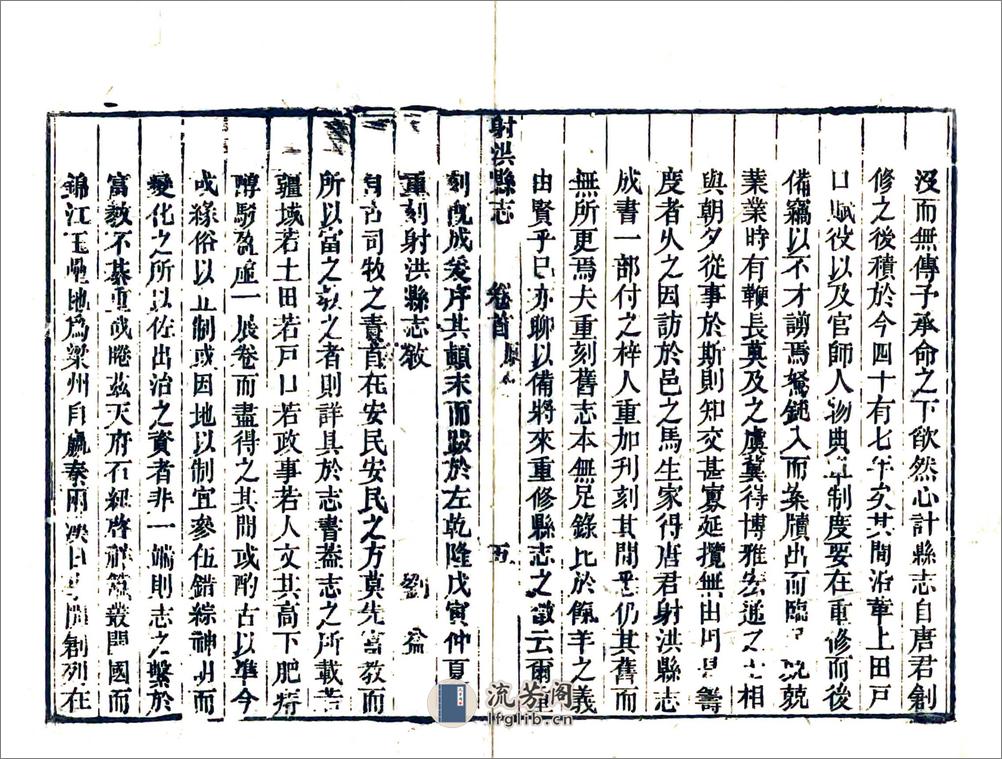 沒而無傳予承命之下欿然心計縣志自唐君創
修之後積於今四十有七年矣其間沿革土田戸
口賦役以及官師人物典章制度要在重修而後
備竊以不才謭焉駑鈍入而案牘出而臨民兢兢
業業時有鞭長莫及之虞冀得博雅宏通之士相
與朝夕從事於斯則知交甚寡延攬無由用是籌
度者久之因訪於邑之馬生家得唐君射洪縣志
成書一部付之梓人重加刊刻其間乎仍其舊而
無所更焉夫重刻舊志本無足錄比於餼羊之義
由賢乎已亦聊以備將來重修縣志之徵云爾重
射洪縣志 卷首 五
刻既成爰序其顛末而跋於左乾隆戊寅仲夏
重刻射洪縣志敘 劉益
自古司牧之責首在安民安民之方莫先富教而
所以富之教之者則詳具於志書蓋志之所載若
疆域若土田若戸口若政事若人文其高下肥瘠
醇駁盈虛一展卷而盡得之其間或酌古以準今
或緣俗以立制或因地以制宜參伍錯綜神明而
變化之所以佐出治之資者非一端則志之繫於
富教不綦重哉睠茲天府石紐啓祥蠶叢開國而
錦江玉壘地爲梁州自嬴秦兩漢日以開創列在
流芳阁
lfglib.cn